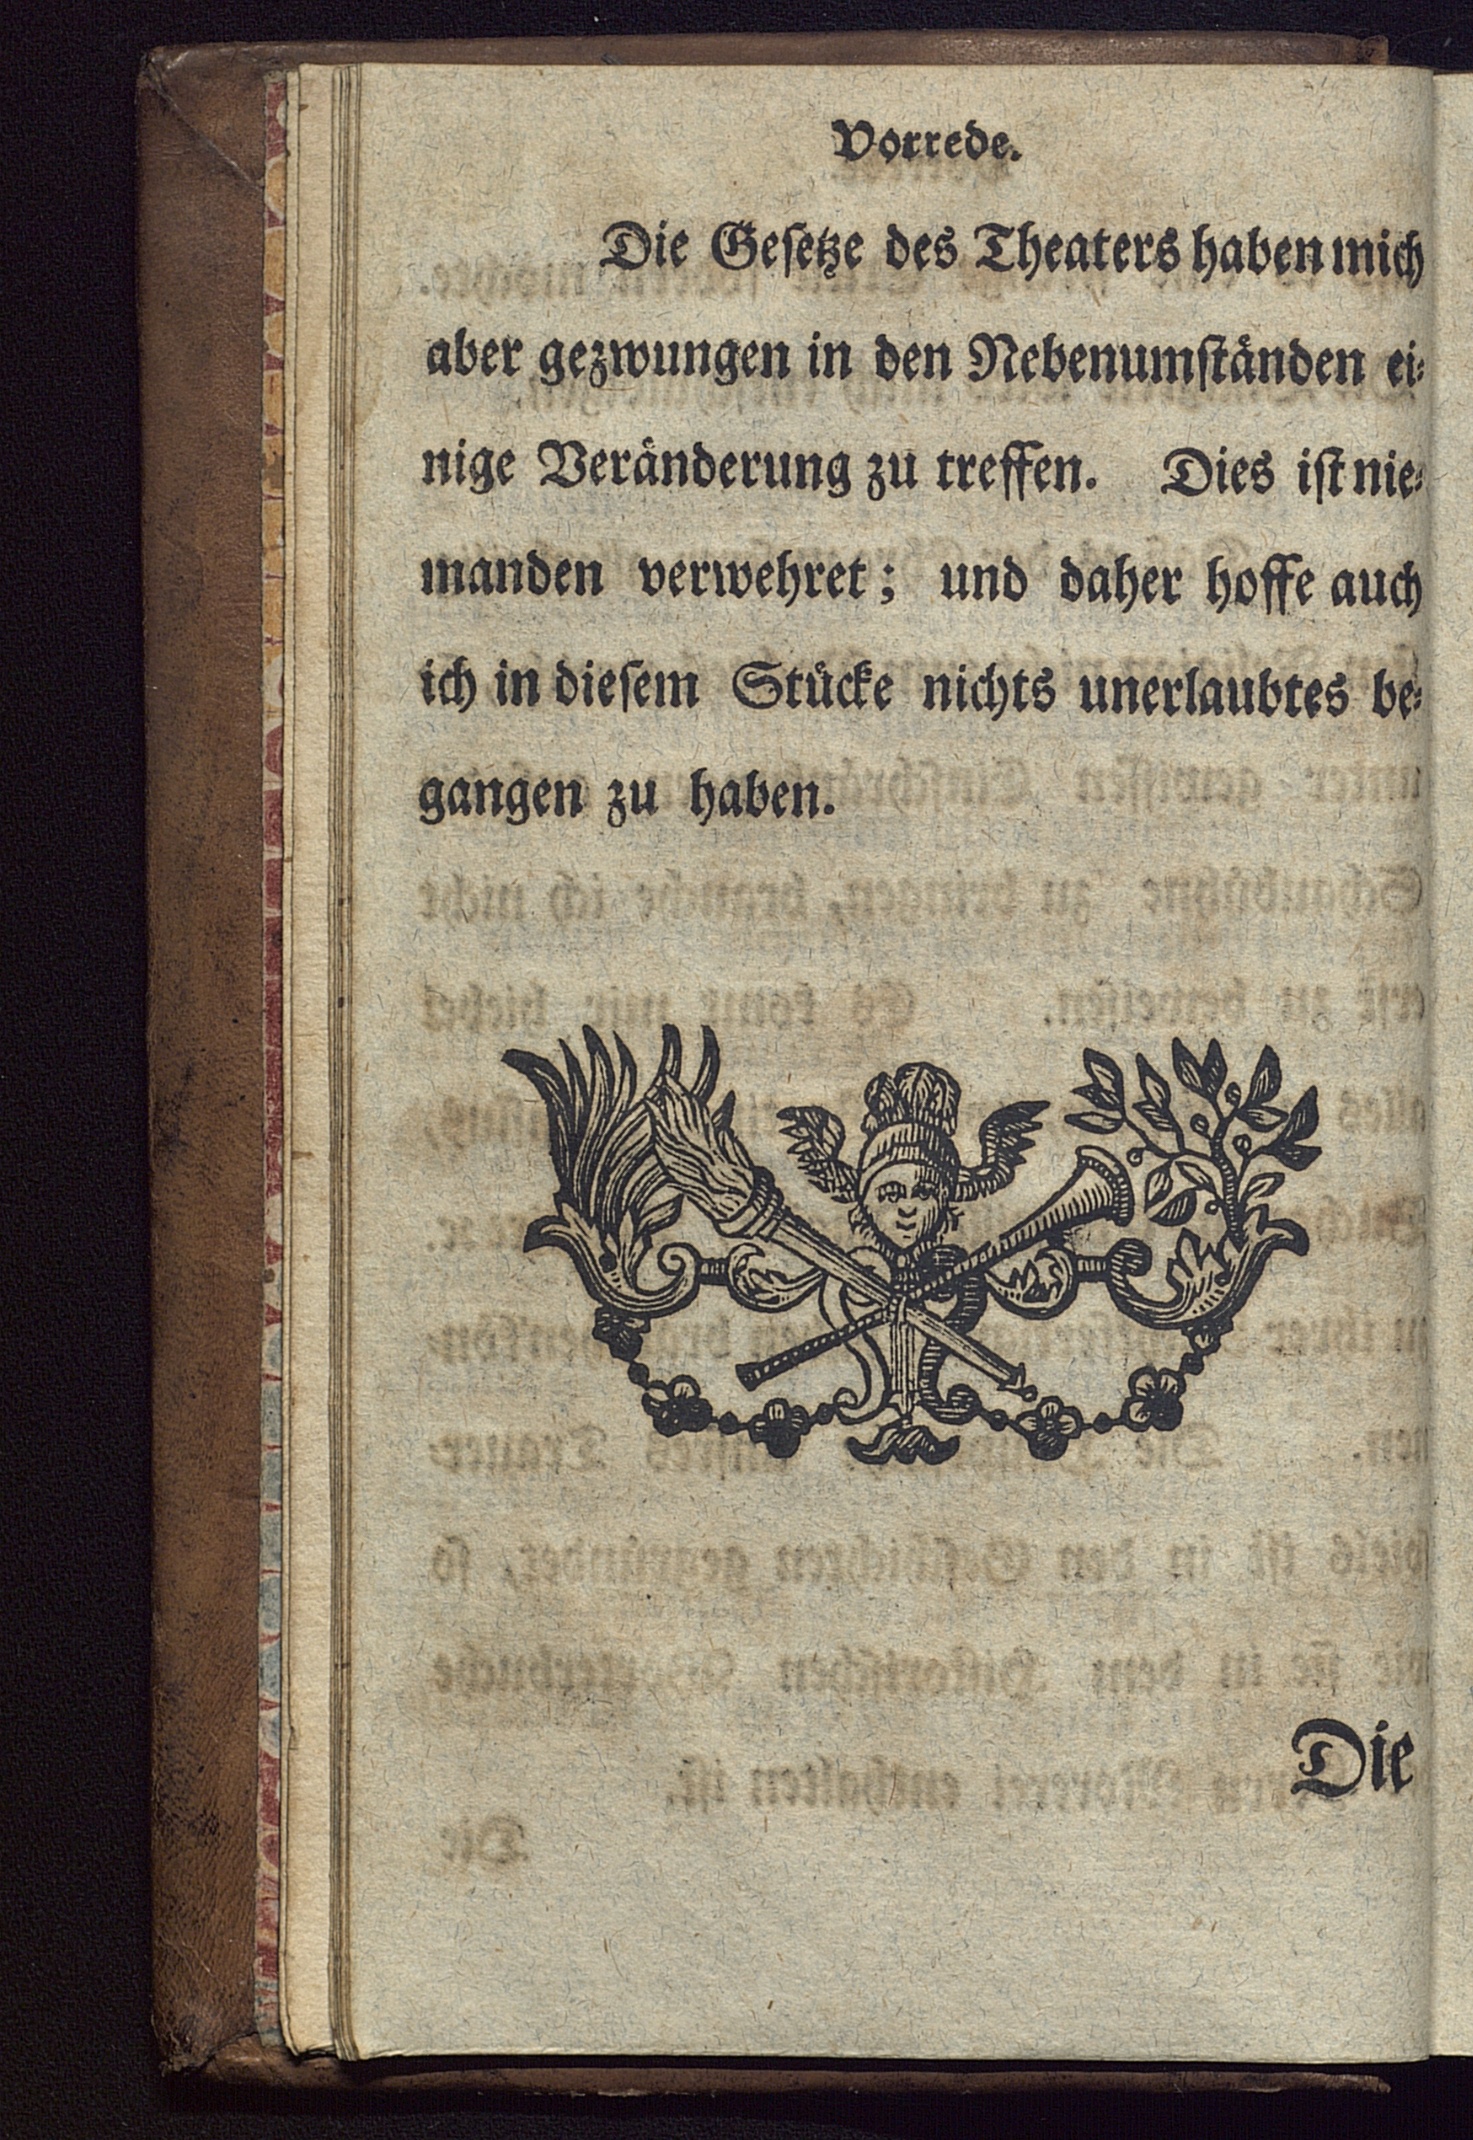 Vorrede.
Die Geſetze des Theaters haben mich
aber gezwungen in den Nebenumſtänden ei⸗
nige Veränderung zu treffen. Dies iſt nie⸗
manden verwehret; und daher hoffe auch
ich in dieſem Stücke nichts unerlaubtes be⸗
gangen zu haben.
Die